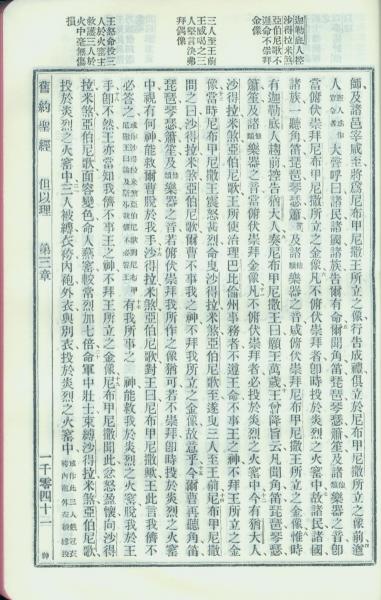 迦勒底人控
沙得拉米煞
亞伯尼歌不
遵命不崇拜
金像
三人至王前
王威嚇之三
人堅言決弗
拜偶像
王怒命投三
人於火窰主
救護三人於
火中毫無傷
損
師及諸邑宰咸至將為尼布甲尼撒王所立之像行告成禮俱立於尼布甲尼撒所立之像前
大聲呼曰諸民諸國諸族告爾有命爾聞角笛琵琶琴瑟簫笙及諸樂器之音卽
當俯伏崇拜尼布甲尼撒王所立之金像凡不俯伏崇拜者卽時投於炎烈之火窰中故諸民諸國
諸族一聽角笛琵琶琴瑟簫及諸樂器之音咸俯伏崇拜尼布甲尼撒王所立之金像惟時
有迦勒底人趨前控告猶大人奏尼布甲尼撒王曰願王萬歲王曾降旨云凡聞角笛琵琶琴瑟
簫笙及諸樂器之音當俯伏崇拜金像凡不俯伏崇拜者必投於炎烈之火窰中今有猶大人
沙得拉米煞亞伯尼歌王所使治理巴比倫州事務者不遵王命不事王之神不拜王所立之金
像當時尼布甲尼撒王震怒甚烈命曳沙得拉米煞亞伯尼歌至遂曳三人至王前尼布甲尼撒
問之曰沙得拉米煞亞伯尼歌爾曹不事我之神不拜我所立之金像故意乎今爾曹再聽角笛
琵琶琴瑟簫笙及諸樂器之音若俯伏崇拜我所作之像猶可若不崇拜卽時投於炎烈之火窰
中視有何神能救爾曹脫於我手沙得拉米煞亞伯尼歌對王曰尼布甲尼撒歟此言我儕不
必答之有我所事之神能救我於炎烈之火窰脫我於王
手卽不然王亦當知我儕不事王之神不拜王所立之金像尼布甲尼撒聞此忿怒盈懷向沙得
拉米煞亞伯尼歌面容變色命人爇窰較常烈加七倍命軍中壯士束縛沙得拉米煞亞伯尼歌
投於炎烈之火窰中三人被縛衣袴內袍外衣與別衣投於炎烈之火窰中
舊約聖經 但以理 第三章 一千零四十一